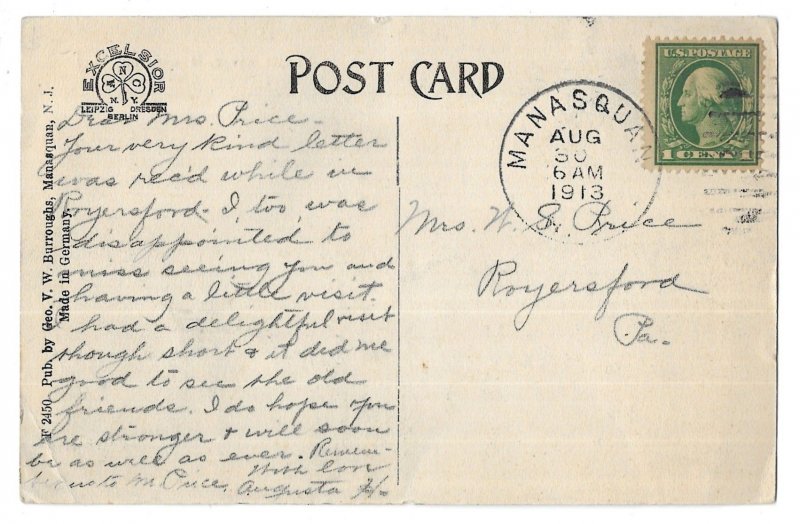 EXCELSIOR
N.Y.
LEIPZIG DRESDEN
BERLIN
POST CARD
U.S. POSTAGE
1 CENT 1
MANASQUAN
AUG
30
6 AM
1913
T 2450 Pub. by Geo. V. W. Burroughs, Manasquan, N. J.
Made in Germany.
Dear Mrs. Price-
Your very kind letter
was rec'd while in
Royersford. I too was
disappointed to
miss seeing you and
having a little visit.
had a delightful visit
though short & it did me
good to see the old
friends. I do hope you
are stronger & will soon
be as well as ever. Remem-
to Mr. Price. With love
Augusta
Mrs. W. S. Price
Royersford
Pa.